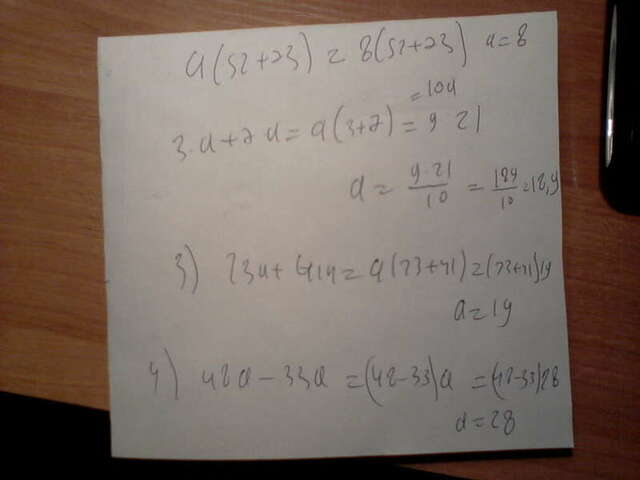 a(52+23) = 8(52+23) a=8
=10a
3·a+7a=a(3+7)=9·21
a = 9·21/10 = 189/10 =18,9
3) 73a+41a=a(73+41)=(73+41)19
a=19
4) 48a-33a =(48-33)a =(48-33)28
a=28